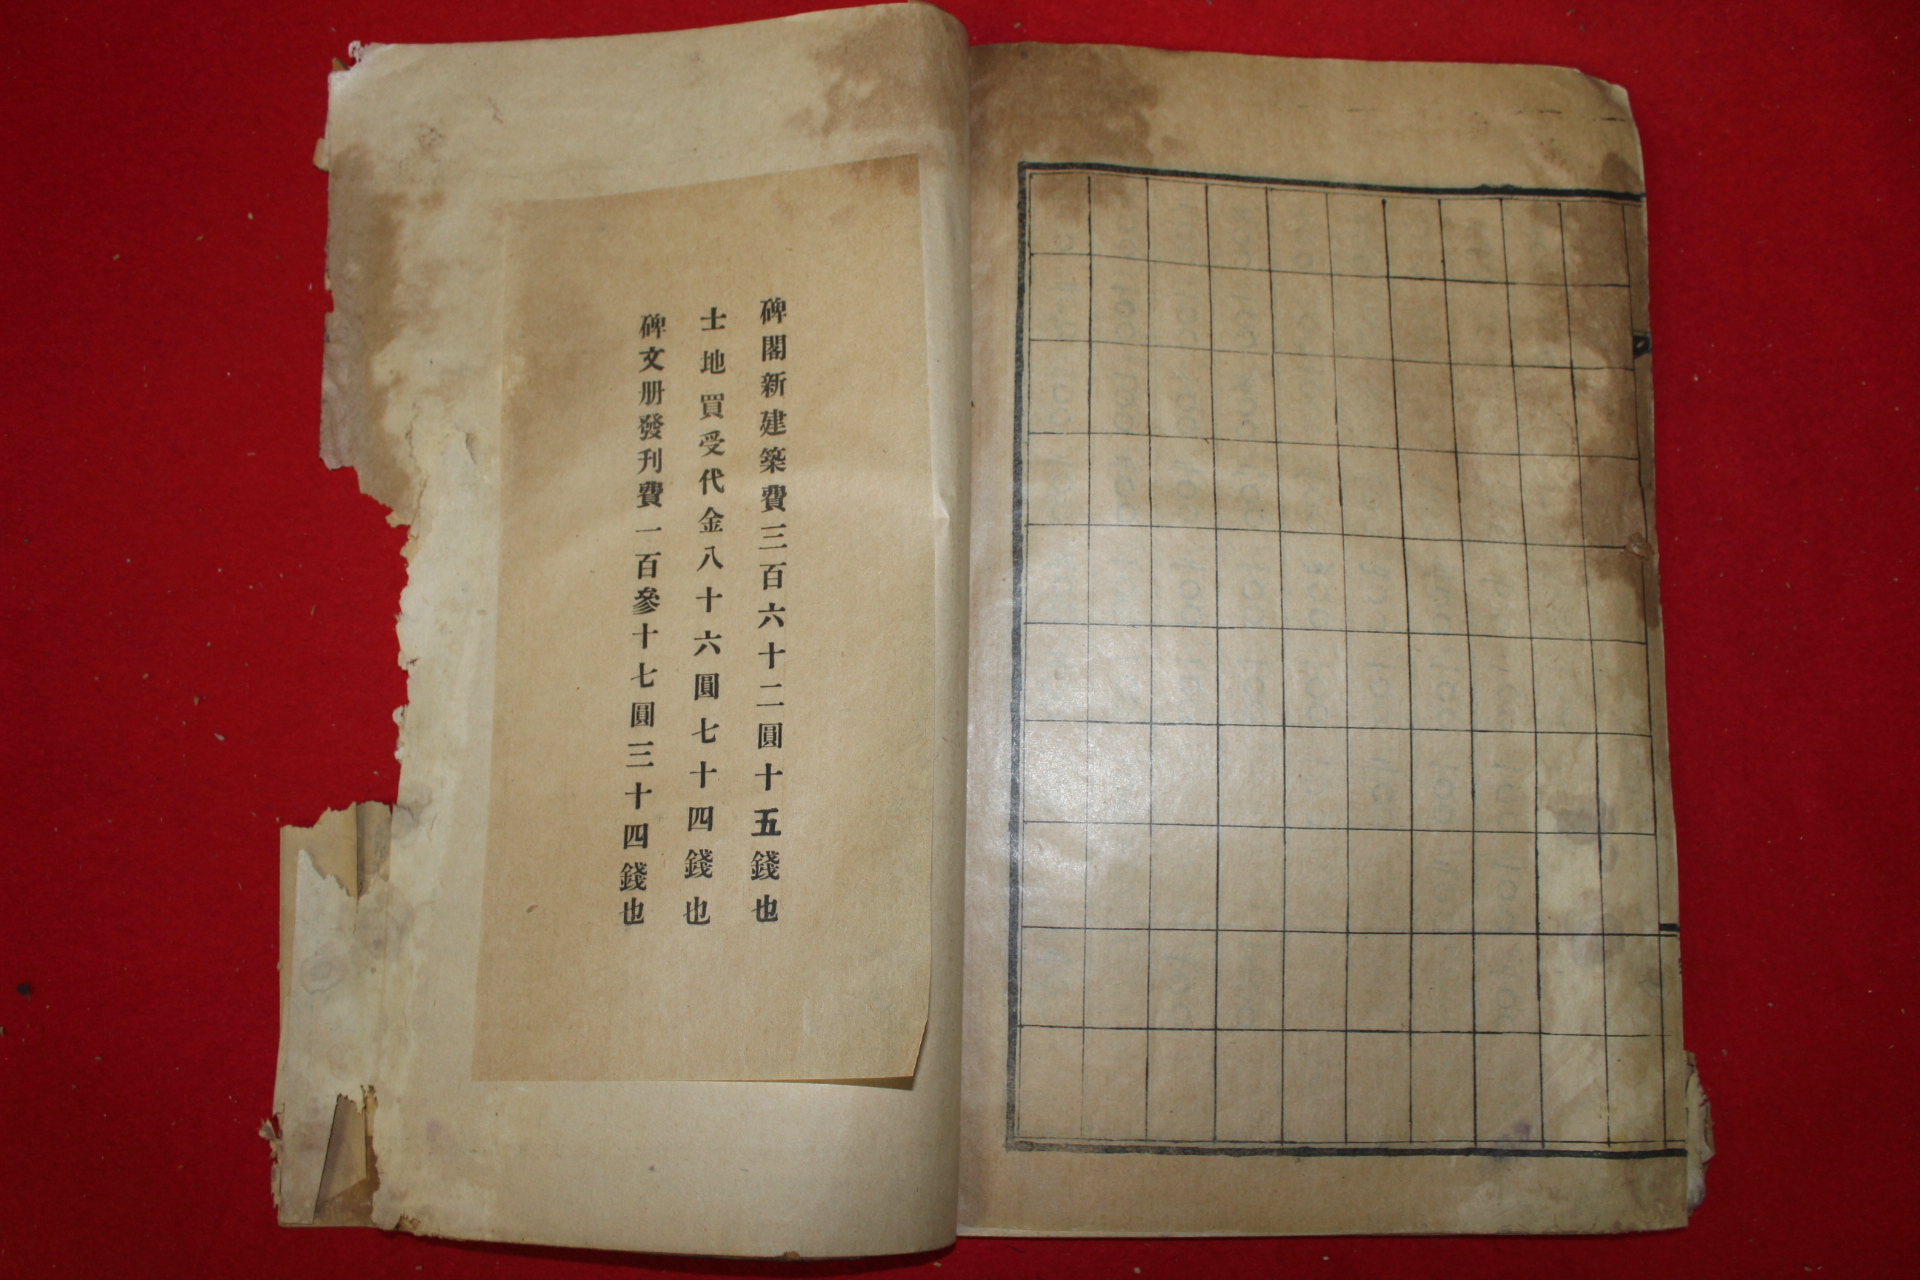 碑閣新建築費三百六十二圓十五錢也
士地買受代金八十六圓七十四錢也
碑文册發刊費一百參十七圓三十四錢也